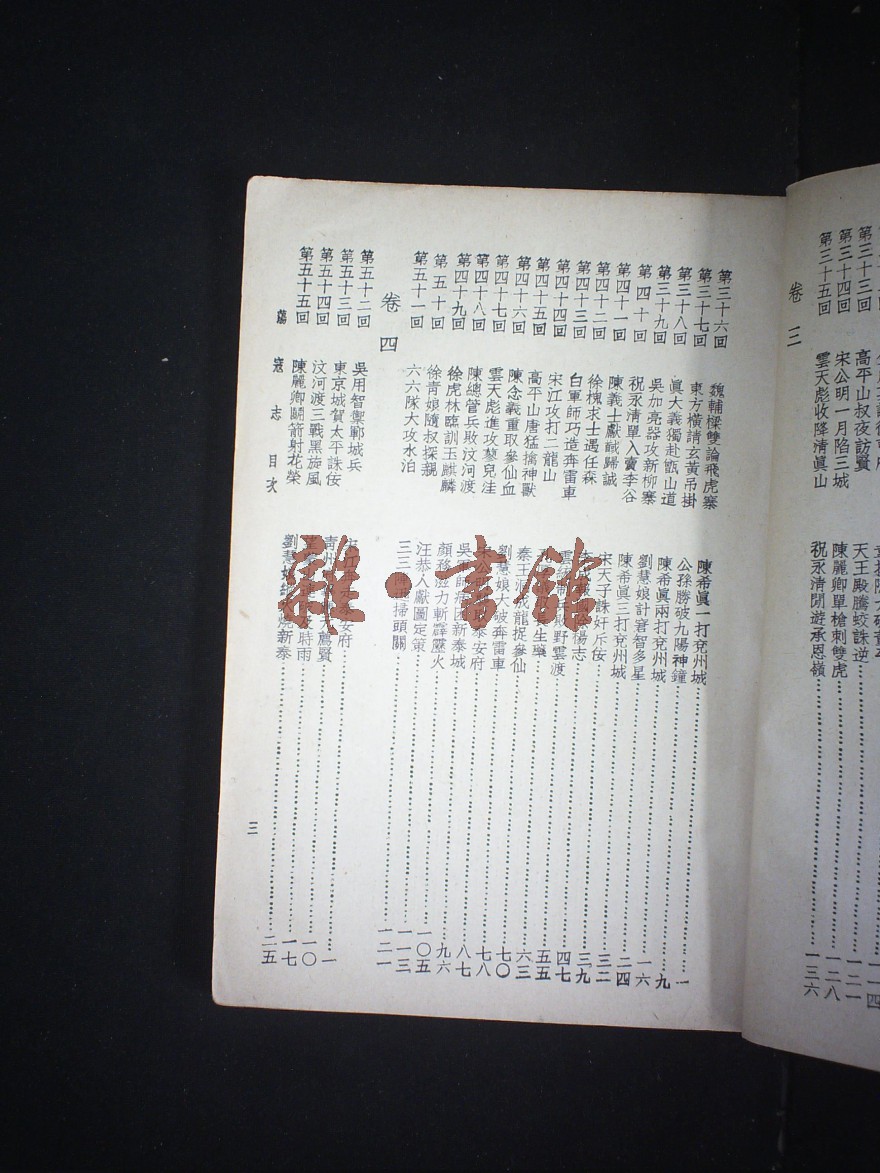 第三十三回 高平山叔夜訪賢 天王殿騰蛟誅逆 一二一
第三十四回 宋公明一月陷三城 陳麗卿單槍刺雙虎 一二八
第三十五回 雲天彪收降清眞山 祝永清閒遊承恩嶺 一三六
卷三
第三十六回 魏輔樑雙論飛虎寨 陳希眞一打兗州城 一
第三十七回 東方橫請玄黃吊掛 公孫勝破九陽神鐘 九
第三十八回 眞大義獨赴甑山道 陳希眞兩打兗州城 一六
第三十九回 吳加亮器攻新柳寨 劉慧娘計窘智多星 二四
第四十回 祝永清單入賣李谷 陳希眞三打兗州城 三二
第四十一回 陳義士獻馘歸誠 宋天子誅奸斥佞 三九
第四十二回 徐槐求士遇任森 楊志 四七
第四十三回 白軍師巧造奔雷車 雲敗野雲渡 五五
第四十四回 宋江攻打二龍山 生藥 六三
第四十五回 高平山唐猛擒神獸 秦王洞成龍捉參仙 七〇
第四十六回 陳念義重取參仙血 劉慧娘大破奔雷車 七八
第四十七回 雲天彪進攻蓼兒洼 宋公明泰安府 八七
第四十八回 陳總管兵敗汶河渡 吳軍師病困新泰城 九六
第四十九回 徐虎林臨訓玉麒麟 顏務滋力斬霹靂火 一〇五
第五十回 徐青娘隨叔探親 汪恭人獻圖定策 一一三
第五十一回 六六隊大攻水泊 三三陣迅掃頭關 一二一
卷四
第五十二回 吳用智禦鄆城兵 宋江泰安府 一
第五十三回 東京城賀太平誅佞 青州薦賢 一〇
第五十四回 汶河渡三戰黑旋風 及時雨 一七
第五十五回 陳麗卿鬬箭射花榮 劉慧娘燒新泰 二五
蕩寇志 目次
三
雜·書館